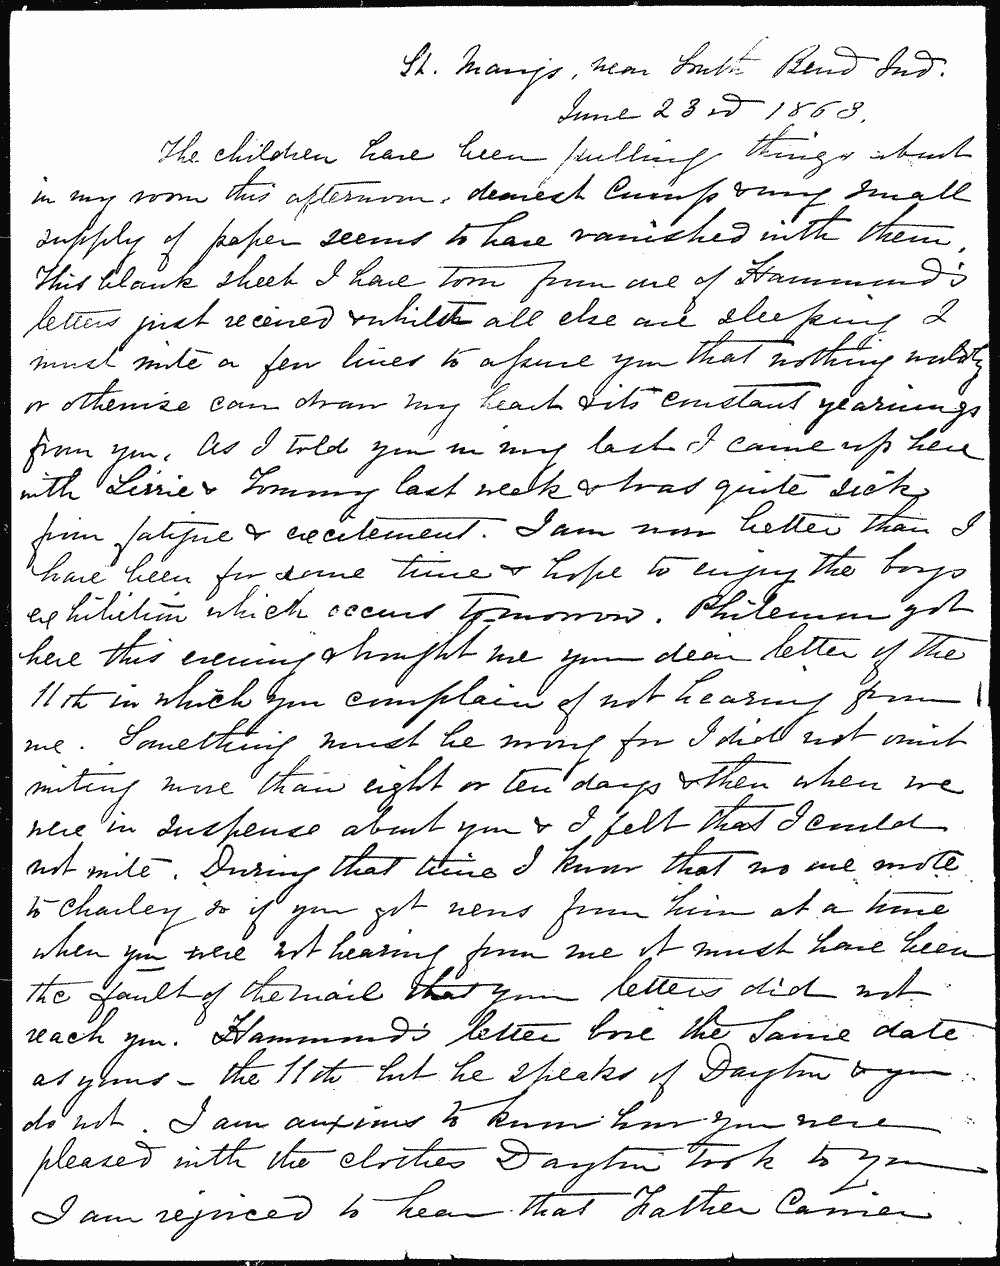 St. Marys, near South Bend Ind.
June 23rd 1863.
The children have been pulling things about
in my room this afternoon, dearest Cump & my small
supply of paper seems to have vanished with them.
This blank sheet I have torn from one of Hammond's
letters just received & whilst all else are sleeping I
must write a few lines to assure you that nothing worldly
or otherwise can draw my heart & its constant yearnings
from you. As I told you in my last I came up here
with Lizzie & Tommy last week & was quite sick
from fatigue & excitement. I am now better than I
have been for some time & hope to enjoy the boys
exhibition which occurs tomorrow. Philemon got
here this evening & brought me your dear letter of the
11th in which you complain of not hearing from
me. Something must be wrong for I did not omit
writing more than eight or ten days & then when we
were in suspense about you & I felt that I could
not write. During that time I know that no one wrote
to Charley so if you got news from him at a time
when you were not hearing from me it must have been
the fault of the mail that your letters did not
reach you. Hammond's letter bore the same date
as yours - the 11th but he speaks of Dayton & you
do not. I am anxious to know how you were
pleased with the clothes Dayton took to you
I am rejoiced to hear that Father Carrier